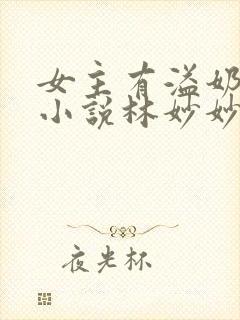 女主有溢奶
小说林妙妙
夜光杯